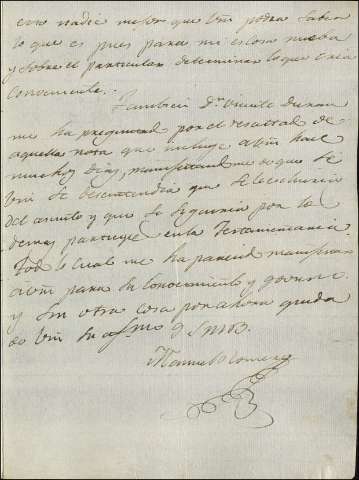 esto nadie mejor que Vm podra saber
lo que es pues para mi es cosa nueba
y sobre el particular determinar lo que crea
conveniente.
Tambien Dn Vicente Duran
me ha preguntado por el resultado de
aquella nota que incluye a Vm hace
muchos dias, manifestandome que si
Vm se desentendia que
del asunto y que lo seguiria por los
demas participes en la Testamentaria.
Todo lo cual me ha parecido manifestar
a Vm para su conocimiento y govierno
y sin otra cosa por ahora queda
de Vm su afmo q S M B.
Manuel Romero